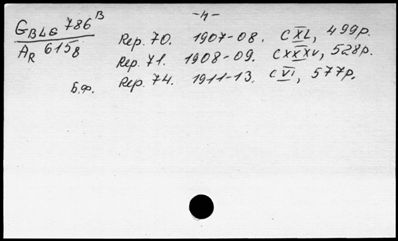 -4-
G BLG 786 B
A R 615 8
Rep. 70. 1907-08. CXL, 499p.
Rep. 71. 1908-09. CXXXV, 528p.
Б.Ф. Rep. 74. 1911-13. CVI, 577p.